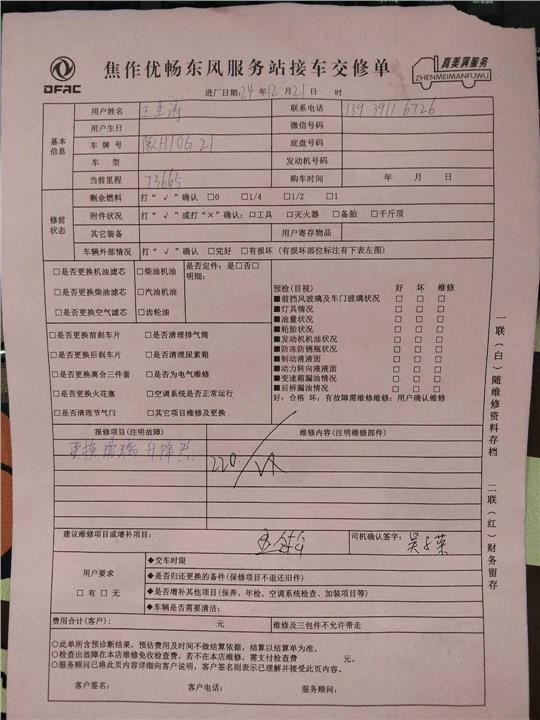 DFAC
焦作优畅东风服务站接车交修单
真美满服务
ZHENMEIMANFUWU
进厂日期:24 年 12 月 21 日 时
基本信息
用户姓名 联系电话 139 3911 6726
用户生日 微信号码
车牌号 豫H10G21 底盘号码
车型 发动机号码
当前里程 73665 购车时间 年 月 日
修前状态
剩余燃料 打“√”确认 □0 □1/4 □1/2 □1
附件状况 打“√”或打“×”确认:□工具 □灭火器 □备胎 □千斤顶
其它装备 用户寄存物品
车辆外部情况 打“√”确认 □完好 □有损坏(有损坏部位标注有下表左图)
□是否更换机油滤芯 □柴油机油 是否定件:是□否□
明细:
□是否更换柴油滤芯 □汽油机油
□是否更换空气滤芯 □齿轮油
□是否更换前刹车片 □是否清理排气筒
□是否更换后刹车片 □是否清理尿素箱
□是否更换离合三件套 □是否为电气维修
□是否更换火花塞 □空调系统是否正常运行
□是否清理节气门 □其它项目维修及更换
预检(目视) 好 坏 维修
■前挡风玻璃及车门玻璃状况 □ □ □
■灯具情况 □ □ □
■油量状况 □ □ □
■轮胎状况 □ □ □
■发动机机油状况 □ □ □
■防冻防锈瓶状况 □ □ □
■制动液液面 □ □ □
■动力转向液液面 □ □ □
■变速箱漏油情况 □ □ □
■后桥漏油情况 □ □ □
好:合格 坏:有故障需维修维修:用户确认维修
报修项目(注明故障) 维修内容(注明维修部件)
更换玻璃升降器 220
建议维修项目或增补项目: 司机确认签字:
用户要求
□有 □无
◆交车时限
◆是否归还更换的备件(保修项目不退还旧件)
◆是否增补其他项目(保养、年检、空调系统检查、加装项目等)
◆车辆是否需要清洁:
费用合计(客户): 元 维修及三包件不允许带走
○此单所含预诊断结果,预估费用及时间不做结算依据,结算以结算单为准。
○检查出故障在本店维修免收检查费,若不在本店维修,需支付检查费 元。
○服务顾问已将此页内容详细向客户说明,客户签名则表示已理解并接受此页内容。
客户签名: 客户电话: 服务顾问:
一联(白)随维修资料存档
二联(红)财务留存